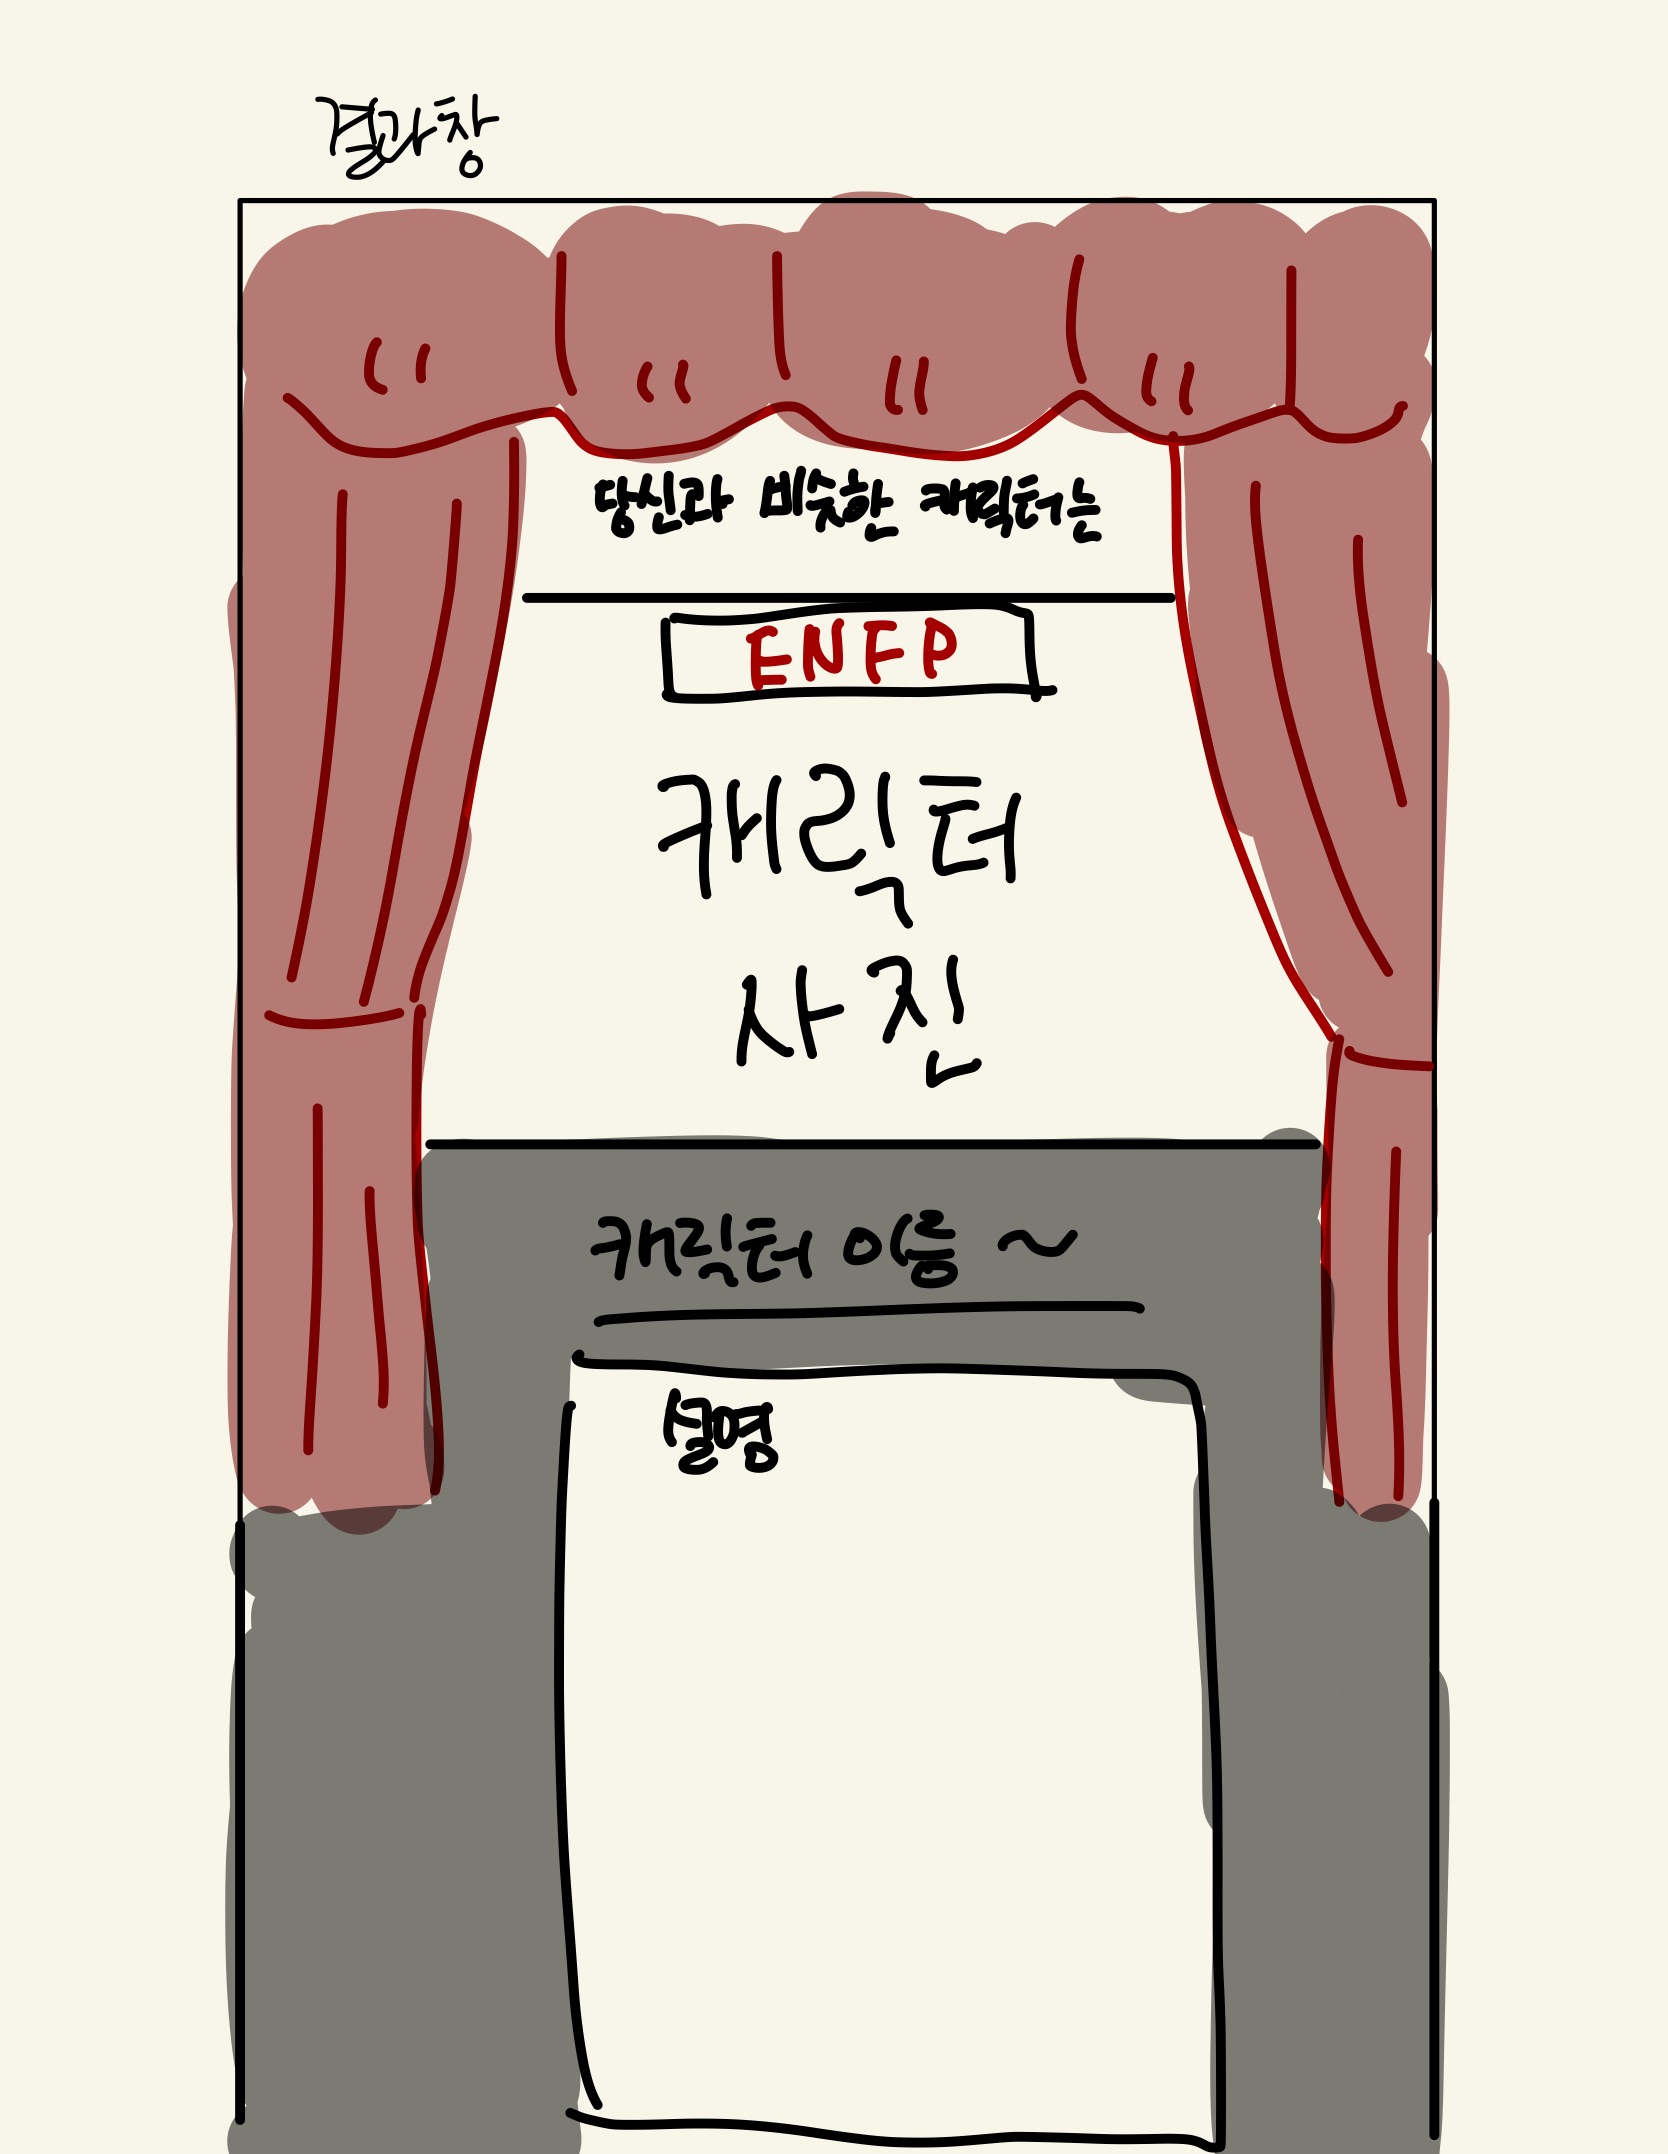 결과창
당신과 비슷한 캐릭터는
ENFP
캐릭터
사진
캐릭터 이름 ~
설명